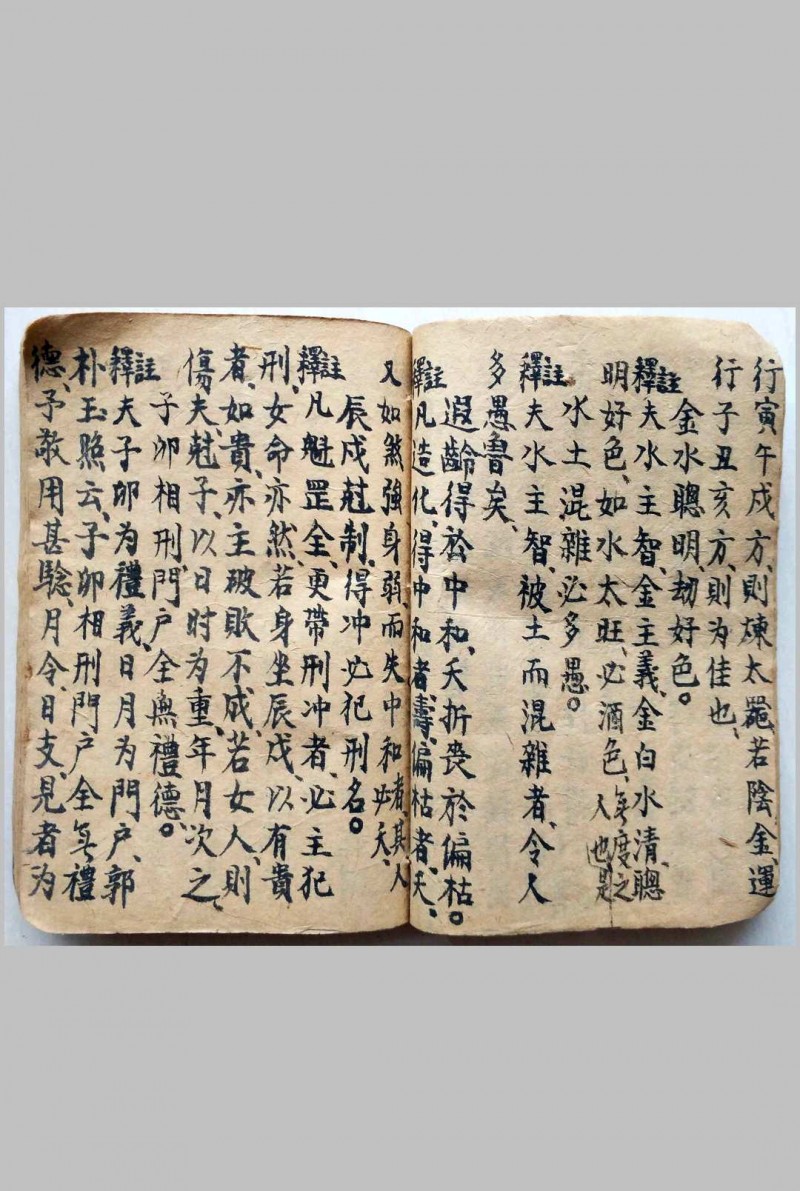 行寅午戌方、則煉太罷、若陰金、運
行子丑亥方、則为佳也、
金水聰明劫好色。
註釋夫水主智、金主義、金白水清、聰
明好色、如水太旺、必酒色、無度之人也、是
水土混雜必多愚。
註釋夫水主智、被土而混雜者、令人
多愚魯矣、
遐齡得於中和、夭折丧於偏枯。
註釋凡造化、得中和者、壽、偏枯者、夭、
又如煞強身弱、而失中和者、其人必夭、
辰戍尅制、得冲必犯刑名。
註釋凡魁罡全、更帶刑冲者、必主犯
刑、女命亦然、若身坐辰戍、以有貴
者、如貴、亦主破敗不成、若女人、則
傷夫、尅子、以日时为重、年月次之、
子卯相刑、門户全無禮德。
註釋夫子卯、为禮義、日月为門户、郭
朴玉照云、子卯相刑門户全無禮
德、予敬用甚騐、月令、日支、見者为